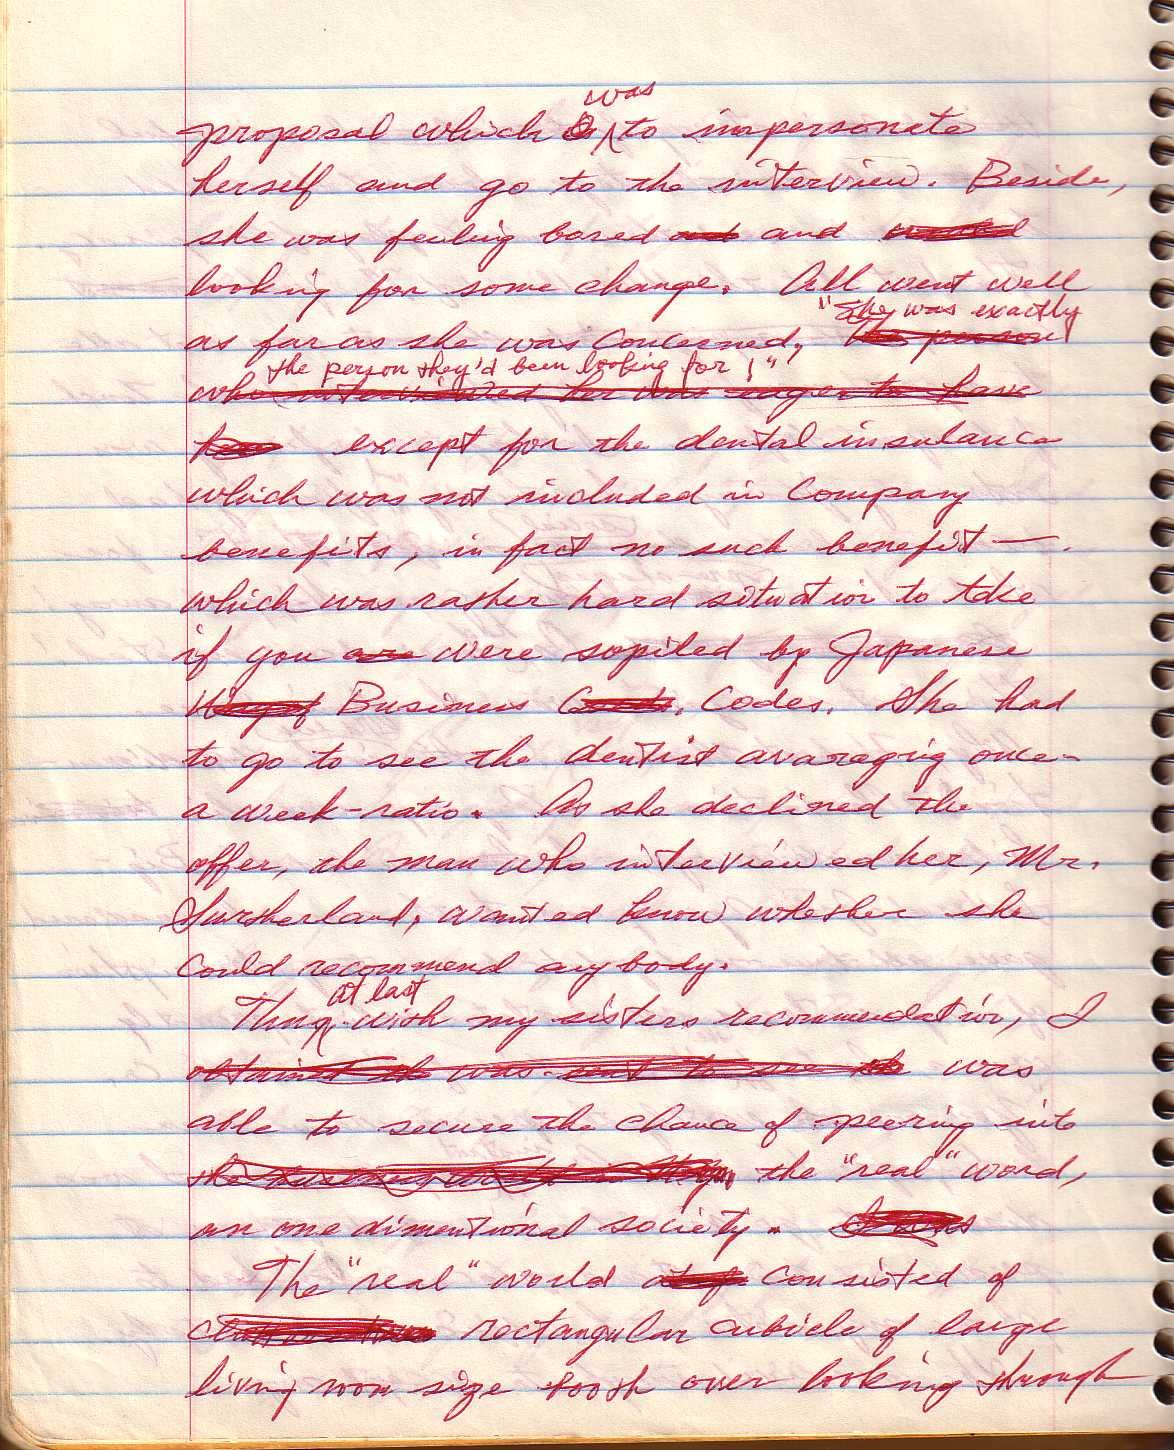 was
proposal which to impersonate
herself and go to the interview. Beside,
she was feeling bored and and
looking for some change. All went well
"She was exactly
as far as she was concerned, the person
the person they'd been looking for!"
who interviewed her was eager to have
her except for the dental insulance
which was not included in Company
benefits, in fact no such benefit —.
which was rather hard situation to take
if you are were by Japanese
Business Codes. She had
to go to see the dentist avaraging once-
a week-ratio. As she declined the
offer, the man who interviewed her, Mr.
Surtherland, wanted know whether she
could recommend anybody.
at last
Thus with my sisters recommendation, I
obtained the was sent to see the was
able to secure the chance of peering into
the the "real" word,
an one dimentional society. I was
The "real" world consisted of
rectangular cubicle of large
living room size tooth over looking through